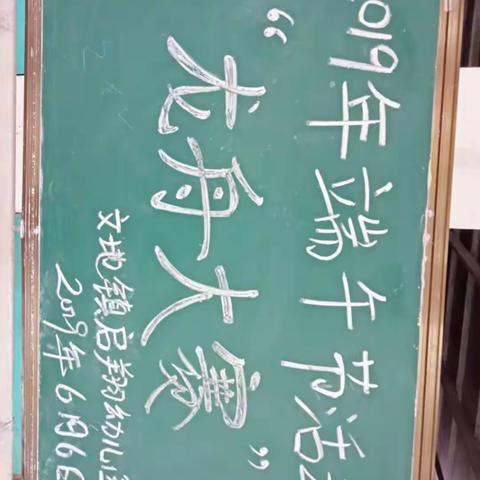 2019年端午节活
“龙舟大赛”
文地镇启翔幼儿园
2019年6月6日